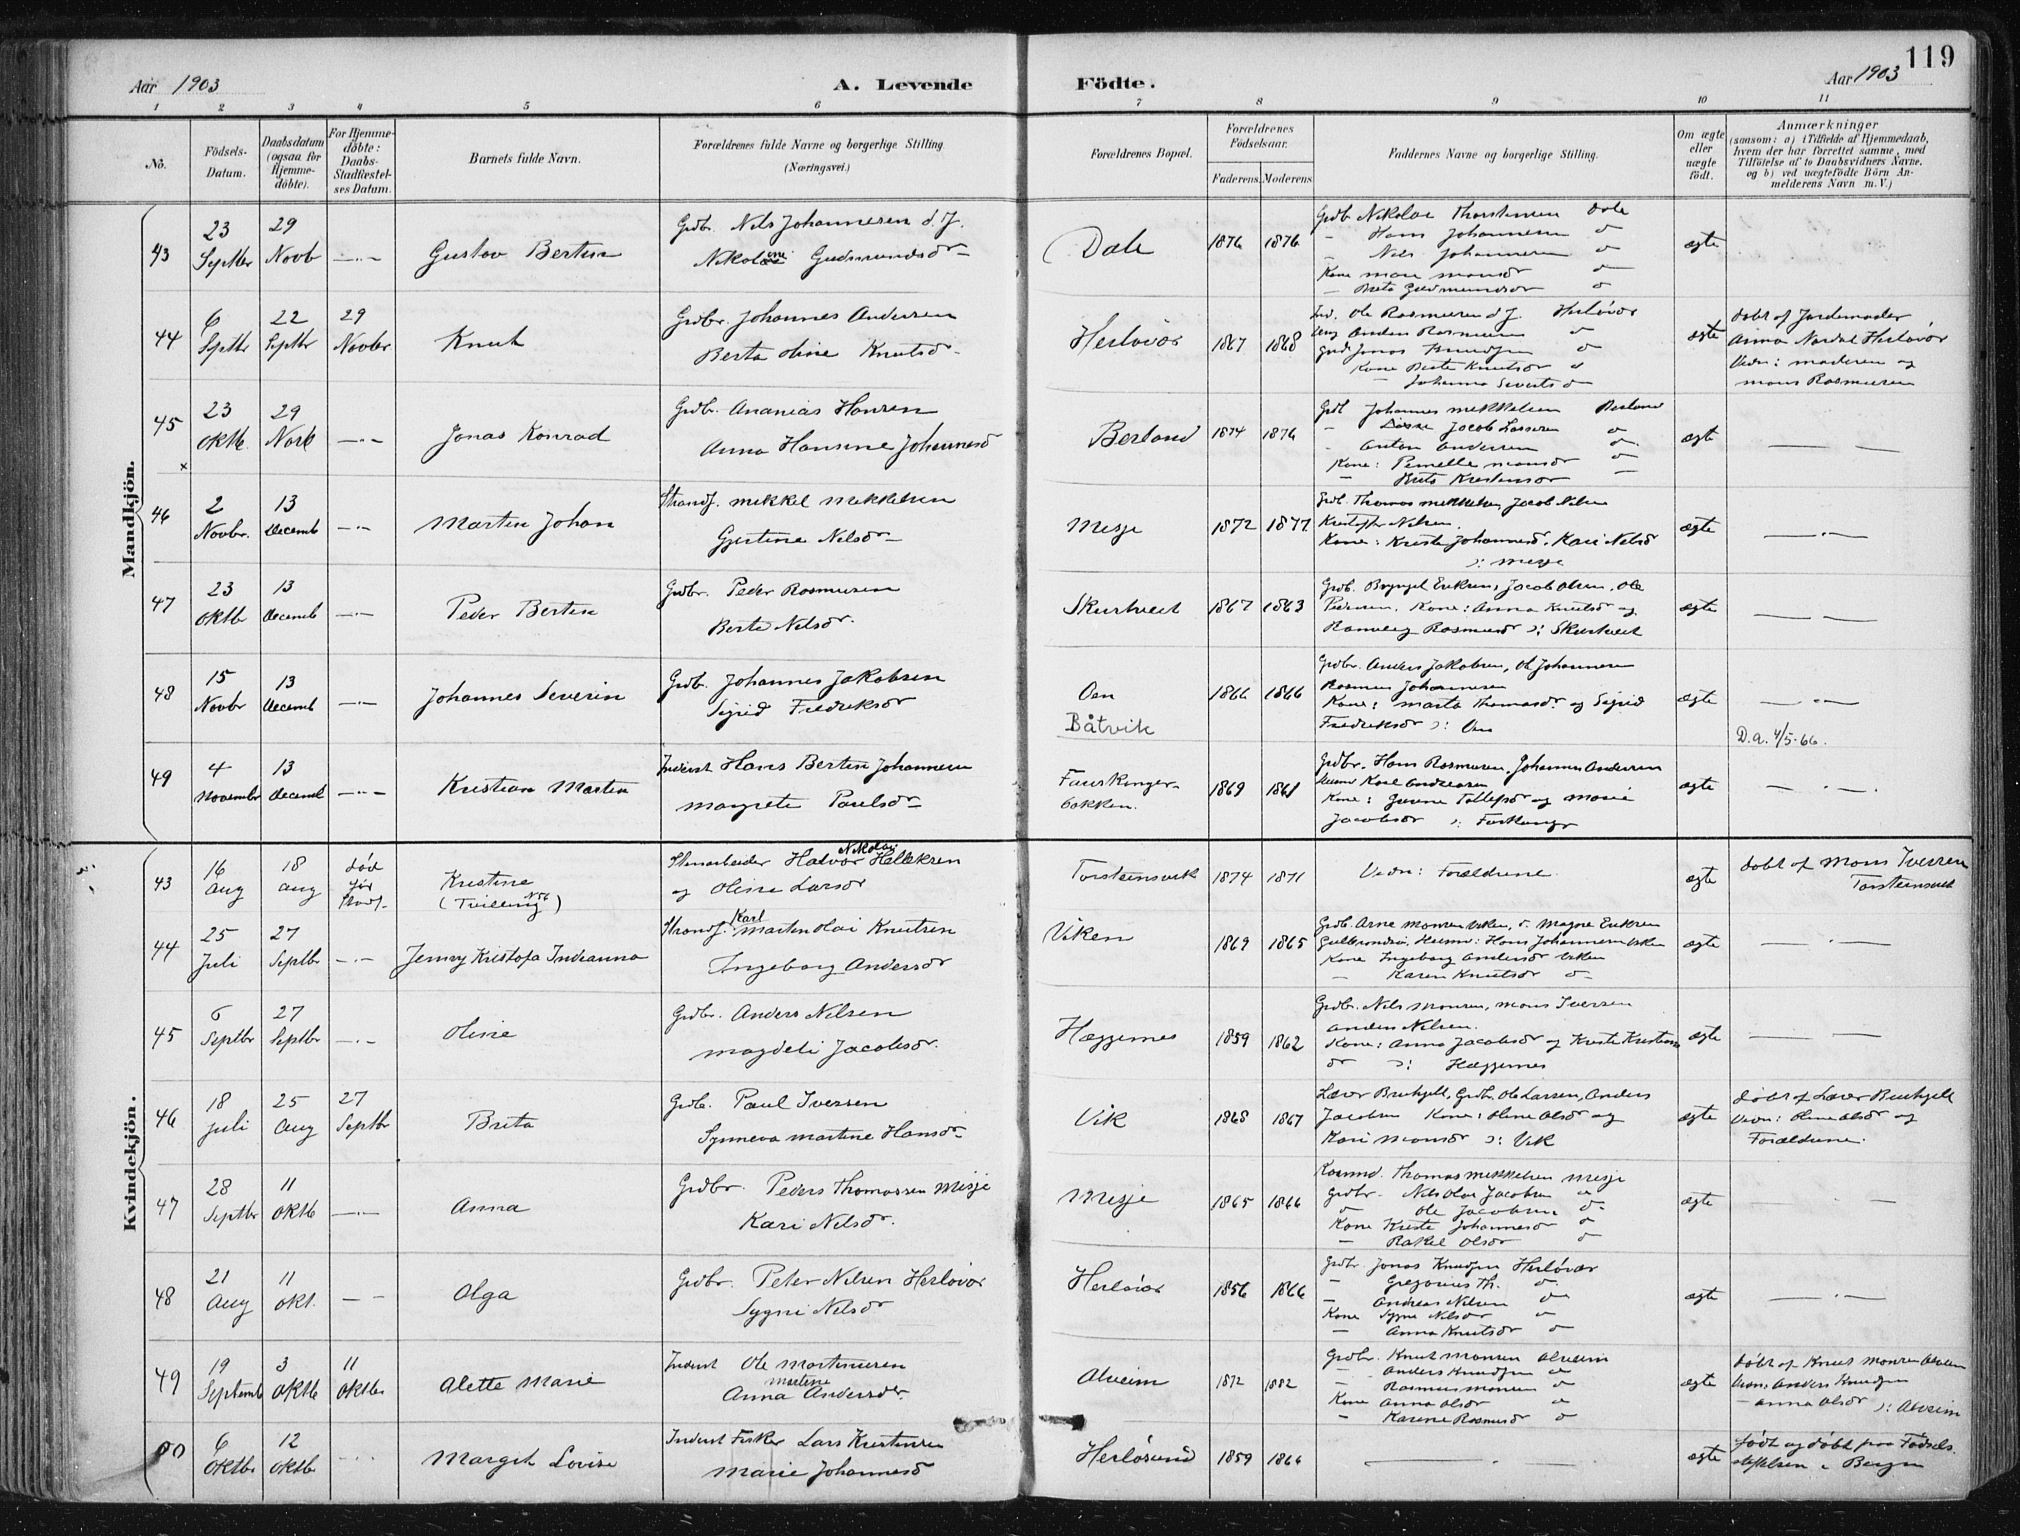 119
Aar 1903
A. Levende
Födte.
Aar 1903
1 2 3 4 5 6 7 8 9 10 11
No.
Födsels-
Datum.
Daabsdatum
(ogsaa for
Hjemme-
døbte).
For Hjemme-
döbte:
Daabs-
Stadfæstel-
ses Datum.
Barnets fulde Navn.
Forældrenes fulde Navne og borgerlige Stilling.
(Næringsvei.)
Forældrenes Bopæl.
Forældrenes
Födselsaar.
Faderens.
Moderens
Faddernes Navne og borgerlige Stilling.
Om ægte
eller
uægte
födt.
Anmærkninger
(saasom: a) i Tilfælde af Hjemmedaab,
hvem der har forrettet samme, med
Tilföielse af to Daabsvidners Navne.
og b) ved uægtefödte Börn An-
melderens Navn m.V.)
Mandkjön.
43
23
Septbr
29
Novb
Gustav Bertin
Grdbr. Nils Johannesen d.J.
Gudmundsdr
Dale
1876 1876
Grdb. Nikolai Thorsteinsen Dale
Hans Johannesen do
Nils Johannesen do
Kone Mari Monsdr do
Brita Gudmundsdr do
ægte
44
6
Septbr
22
Septbr
29
Novbr
Knut
Grdbr. Johannes Andersen
Berta Oline Knutsdr
Herlövær
1867 1868
Ind. Ole Rasmussen d.J. Herlövær
Ung Anders Rasmussen do
Grdb Jonas Knudsen do
Kone Berte Knutsdr do
Johanna Sivertsd do
ægte
döbt af Jordemoder
Anna Nordal Herlövær
Vidn: moderen og
Mons Rasmussen
45
23
Oktb.
29
Novb
Jonas Konrad
Grdb. Ananias Hansen
Anna Hansine Johannesd
Berland
1874 1876
Grdb Johannes Mekkelsen Berland
Jacob Lassesen do
Anton Andersen do
Kone: Pernelle Monsdr do
Brita Kristensdr
ægte
46
2
Novbr.
13
Decemb
Martin Johan
Strands. Mekkel Mekkelsen
Gjertine Nilsdr
Misje
1872 1877
Grdb. Thomas Mekkelsen, Jacob Nilsen
Kristoffer Nilsen.
Kone: Kriste Johannesdr. Kari Nilsdr
): Misje
ægte
47
23
Oktb
13
Decemb
Peder Bertin
Grdbr. Peder Rasmussen
Berte Nilsdr.
Skurtveit
1867 1863
Grdb. Brynjel Eriksen, Jacob Olsen, Ole
Pedersen. Kone: Anna Knutsdr og
Ranveig Rasmusdr ): Skurtveit
ægte
48
15
Novbr
13
Decemb
Johannes Severin
Grdb. Johannes Jakobsen
Sigrid Fredriksdr
Oen
Båtvik
1866 1866
Grdbr. Anders Jakobsen, Ole Johannesen
Rasmus Johannesen
Kone: Marta Thomasdr. og Sigrid
Fredriksdr ): Oen
ægte
D.a. 4/5-66.
49
4
Novembr
13
Decemb
Kristian Martin
Inderst Hans Bertin Johannesen
Margrete Paulsdr
Fauskanger-
bakken.
1869 1861
Grdbr. Hans Rasmussen, Johannes Andersen
Karl Andreasen
Kone: Tollefsdr og Marie
Jacobsdr ):
ægte
Kvindekjön.
43
16
Aug
18
Aug
död
för
Stadf.
Kristine
(Tvilling No 6)
Stenarbeider Halvor Nikolai Helleksen
og Oline Larsdr
Torsteinsvik
1874 1871
Vidn: Forældrene.
ægte
döbt af Mons Iversen
Torsteinsvik
44
25
Juli
27
Septbr
Jenny Kristofa Indianna
Strands. Karl Martin Olai Knutsen
Ingeborg Andersdr
Viken
1869 1865
Grdb. Arne Monsen Viken, do Magne Eriksen
Hans Johannesen Viken
Kone Ingeborg Andersdr Viken
Karen Knutsdr do
ægte
45
6
Septbr
27
Septbr
Oline
Grdbr. Anders Nilsen
Magdeli Jacobsdr.
Hæggernes
1859 1862
Grdbr. Nils Monsen, Mons Iversen
Anders Nilsen.
Kone: Anna Jacobsdr og Kriste Kristians
dr ): Hæggernes
ægte
46
18
Juli
25
Aug
27
Septbr
Brita
Grdb. Paul Iversen
Synneva Martine Hansdr
Vik
1868 1867
Lærer Brekhjell, Grdb. Ole Larsen, Anders
Jacobsen Kone: Oline Olsdr og
Kari Monsdr ): Vik
ægte
döbt af Lærer Brekhjell
Vidn: Oline Olsdr og
Forældrene.
47
28
Septbr
11
Oktb
Anna
Grdbr. Peders Thomassen Misje
Kari Nilsdr.
Misje
1865 1866
Thomas Mekkelsen Misje
Grdbr. Nils Olai Jacobsen do
do Ole Jacobsen do
Kone Kriste Johannesdr do
Rakel Olsdr do
ægte
48
21
Aug
11
Okt.
Olga
Grdbr. Peter Nilsen Herlövær
Sygni Nilsdr
Herlövær
1856 1866
Grdbr Jonas Knudsen Herlövær
Gregorius Th. do
Andreas Nilsen do
Kone Sygne Nilsdr do
Anna Knutsdr do
ægte
49
19
Septemb
3
Oktb
11
Oktbr
Alette Marie
Inderst Ole Martinusen
Anna Martine Andersdr.
Alveim
1872 1882
Grdbr. Knut Monsen Alveim
Anders Knudsen do
Rasmus Monsen do
Kone Anna Olsdr do
Karine Rasmusdr do
ægte
döbt af Knut Monsen Alveim
Vidn: Anders Knudsen
Anna Olsdr ): Alveim
50
6
Oktbr
12
Oktbr
Margit Lovise
Inderst Fisker Lars Kristensen
Marie Johannesd
Herlösund
1859 1866
ægte
födt og döbt paa Födsels
stiftelsen i Bergen